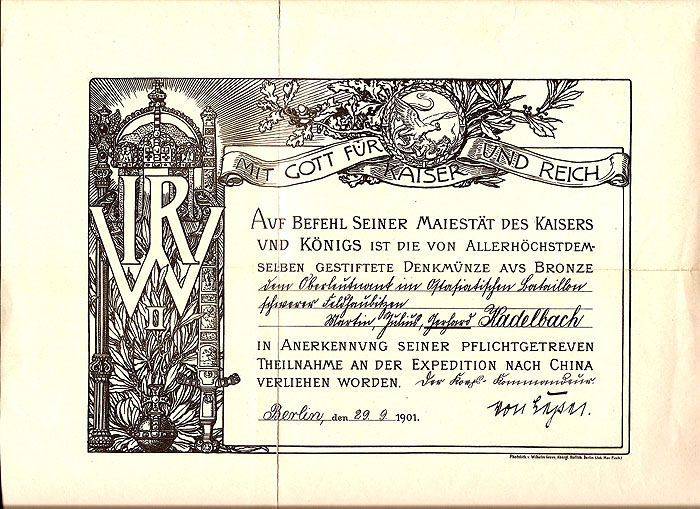 MIT GOTT FÜR KAISER UND REICH
IRW
II
AVF BEFEHL SEINER MAIESTÄT DES KAISERS
VND KÖNIGS IST DIE VON ALLERHÖCHSTDEM-
SELBEN GESTIFTETE DENKMÜNZE AVS BRONZE
dem Oberleutnant im Ostasiatischen Bataillon
schwerer Feldhaubitzen
Martin, Julius, Gerhard Hadelbach
IN ANERKENNVNG SEINER PFLICHTGETREVEN
THEILNAHME AN DER EXPEDITION NACH CHINA
VERLIEHEN WORDEN. Der Korps-Kommandeur.
Berlin, den 29 9 1901.
von